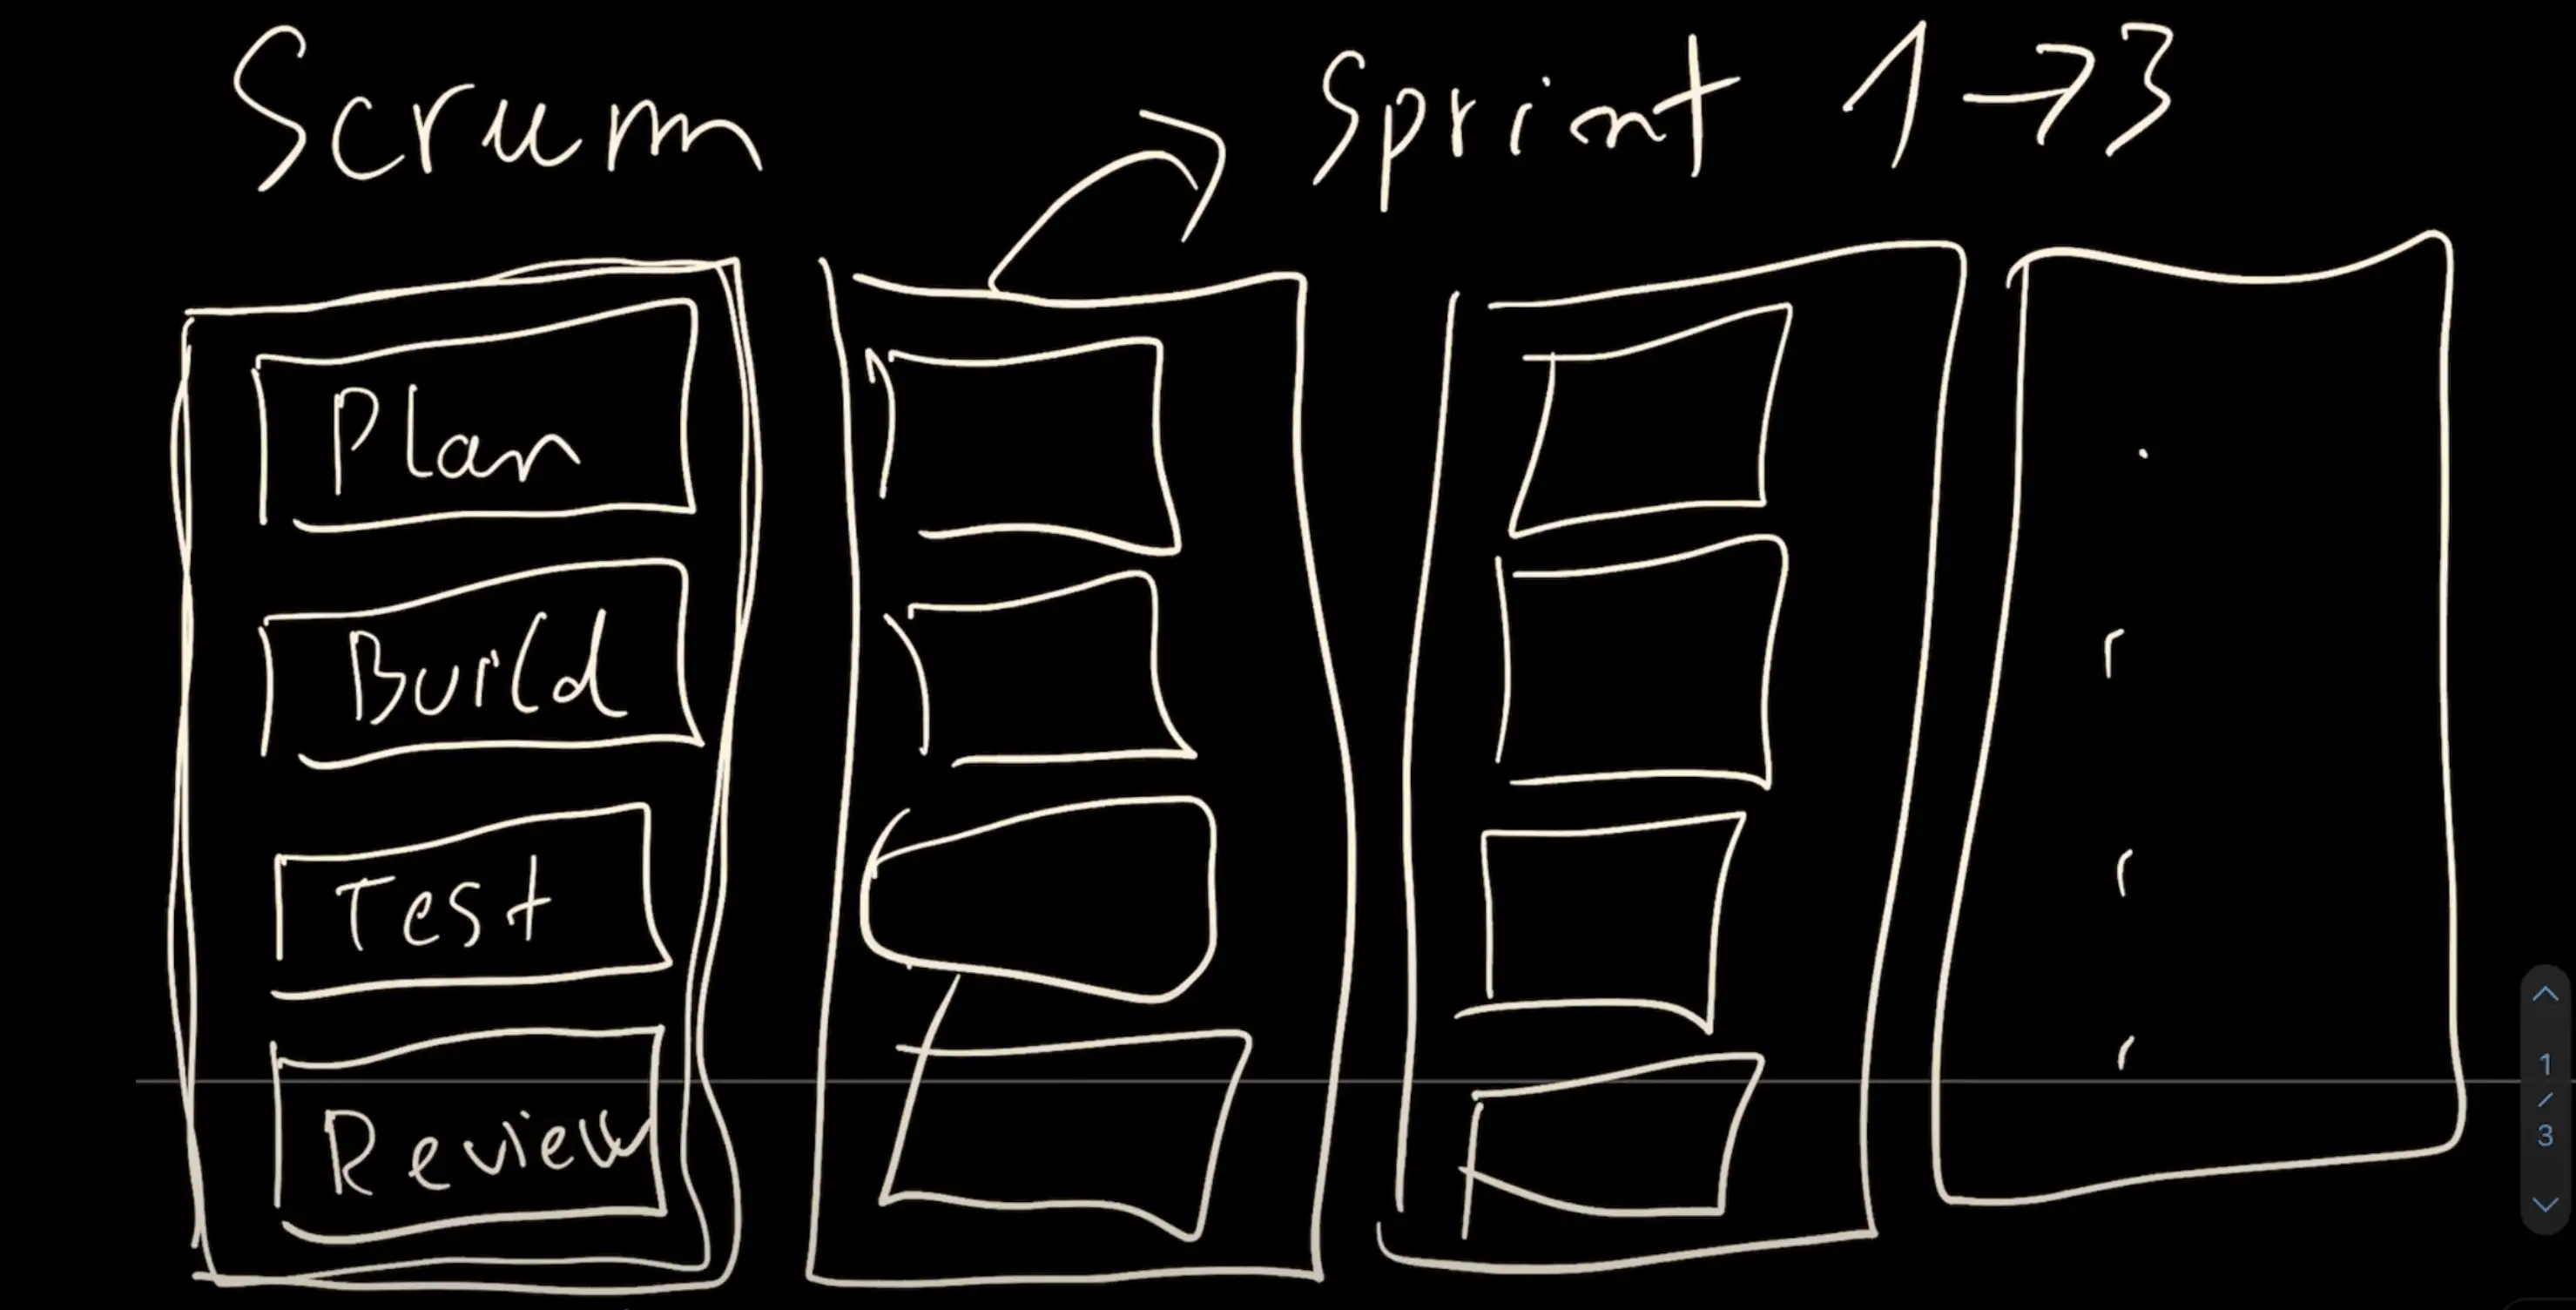 Scrum
Sprint 1→3
Plan
Build
Test
Review
1
/
3